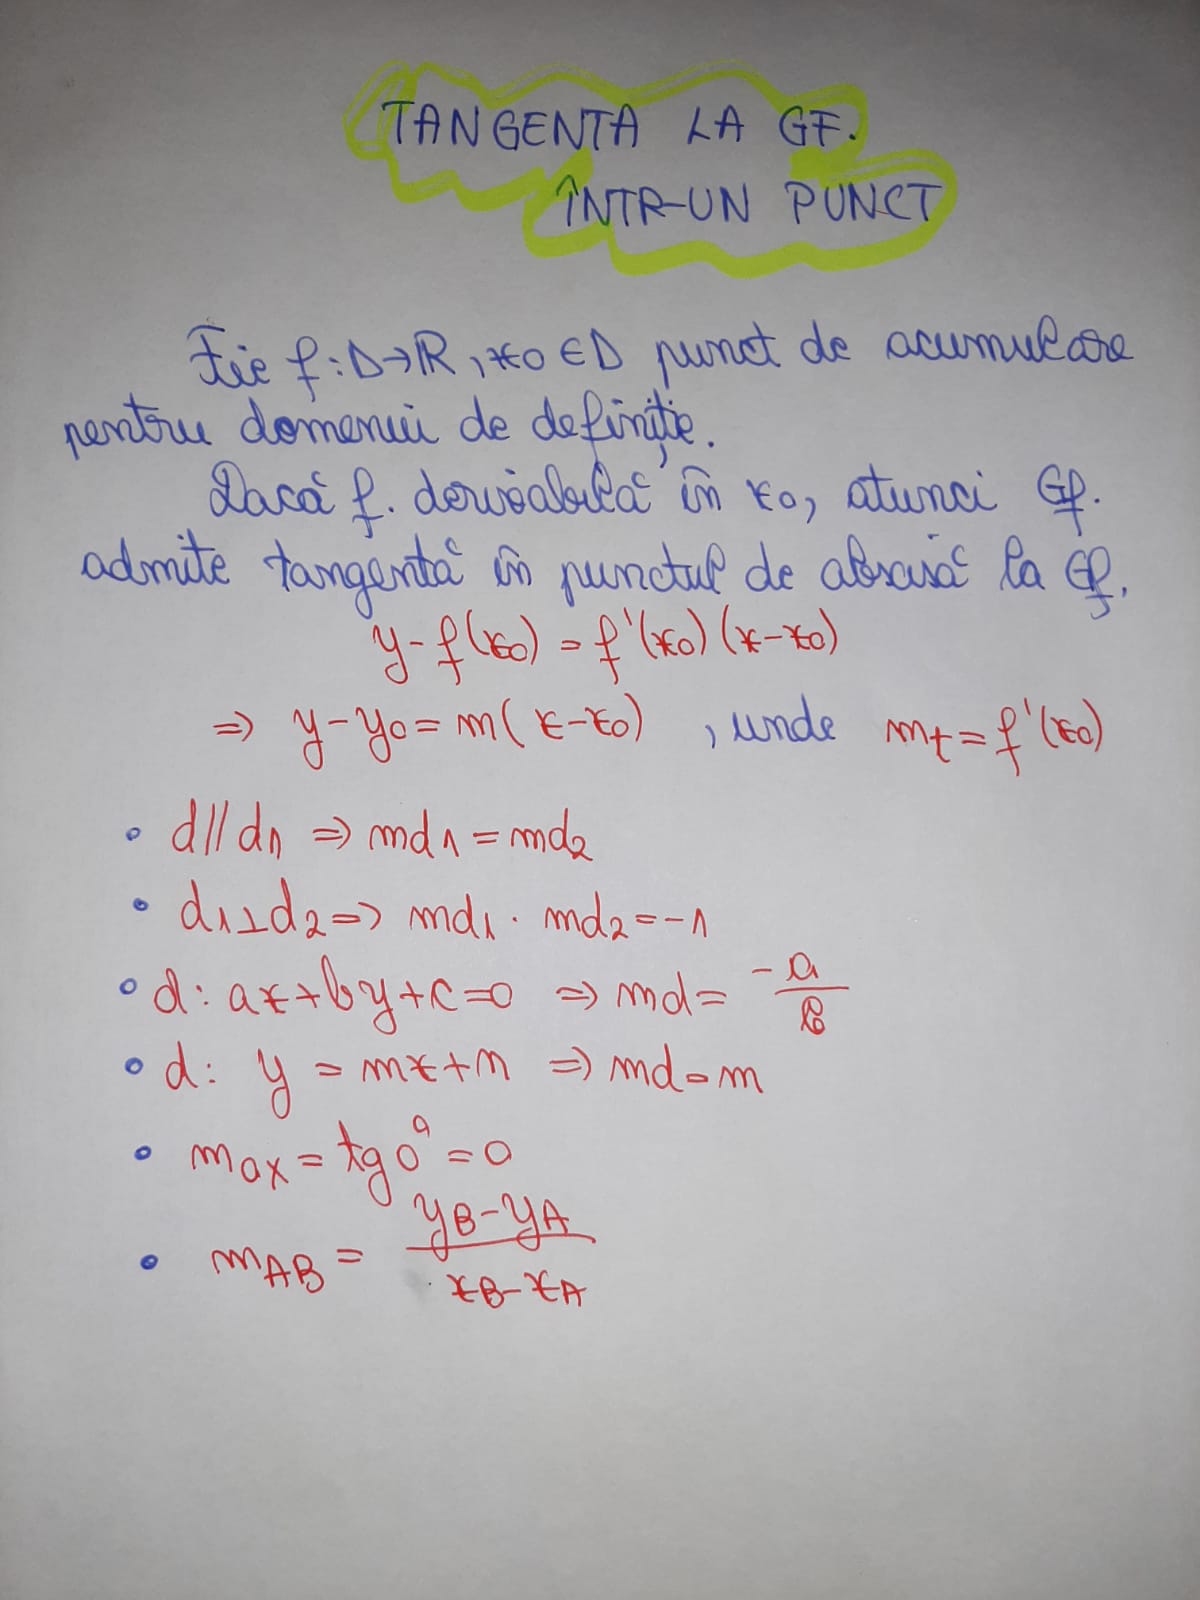 TANGENTA LA GF.
ÎNTR-UN PUNCT
Fie f:D→R, x0 ∈ D punct de acumulare
pentru domeniu de definiție.
Dacă f. derivabilă în x0, atunci Gf.
admite tangentă în punctul de abscisă la Gf.
y-f(x0) = f'(x0)(x-x0)
=> y-y0=m(x-x0) , unde mt=f'(x0)
• d//d1 => md1=md2
• d1⊥d2=> md1 · md2=-1
• d: ax+by+c=0 => md= -a/b
• d: y = mx+n => md=m
• mox=tg0°=0
• mAB= yB-yA / xB-xA